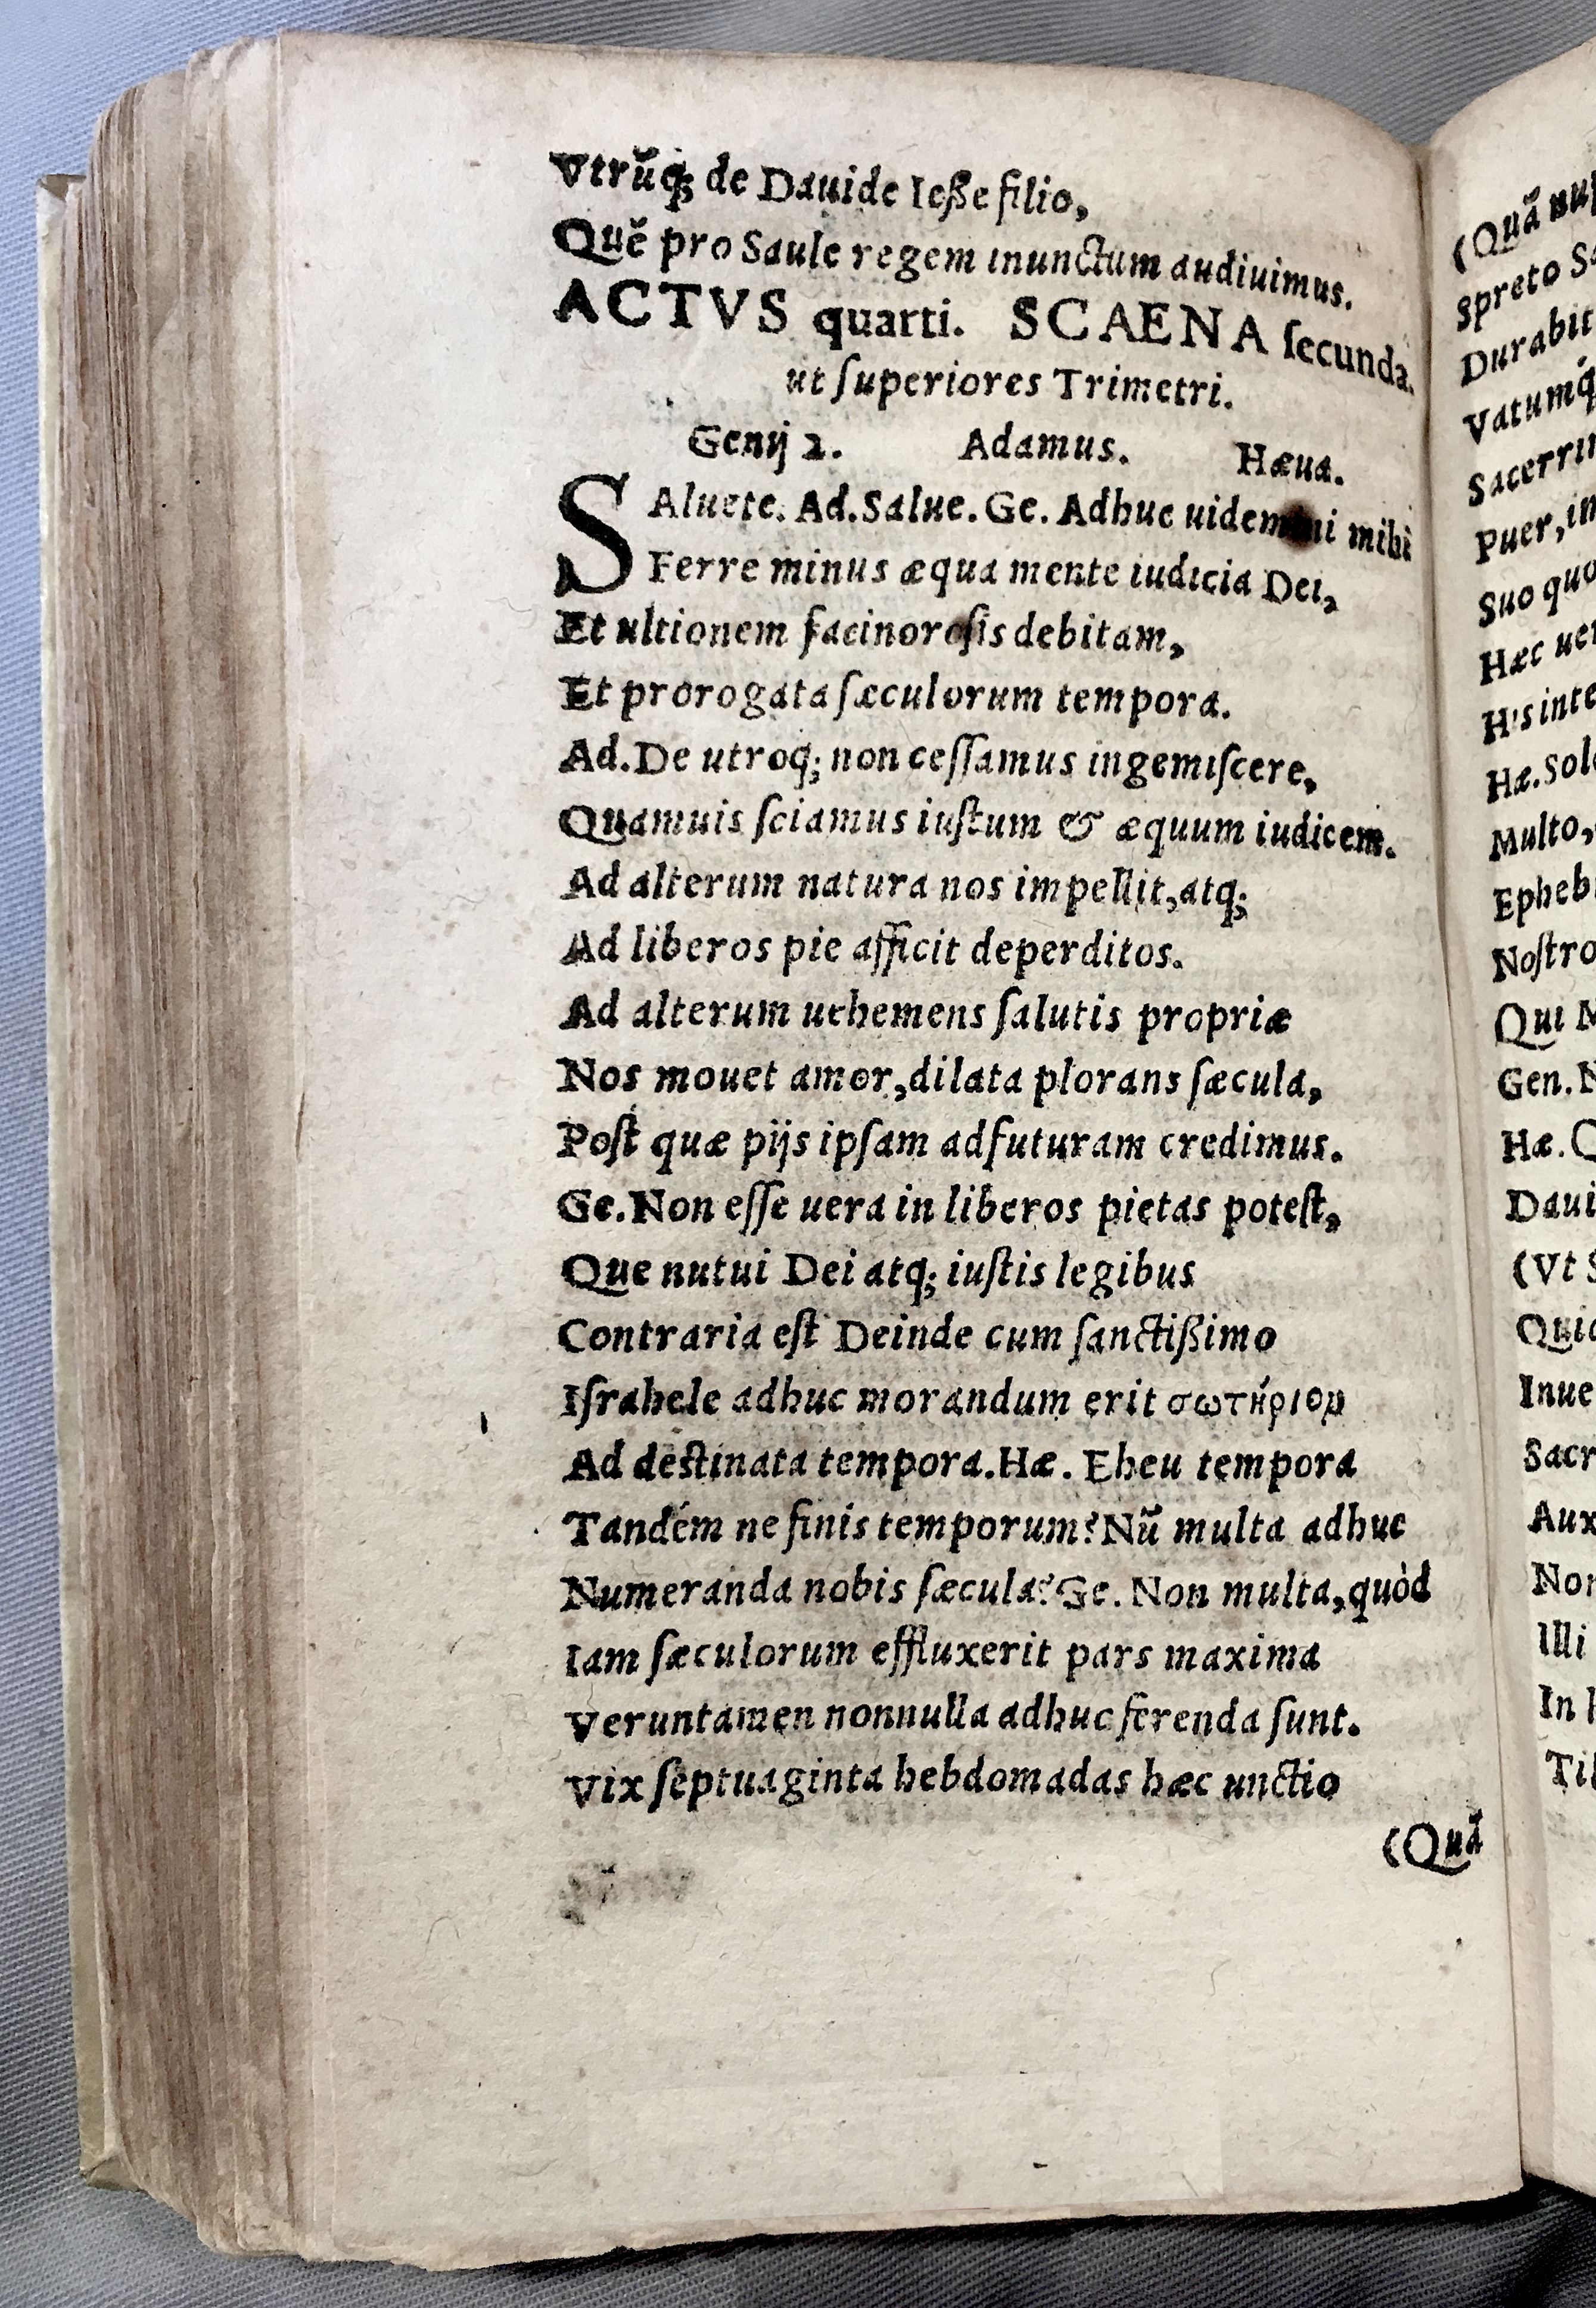 Vtrũq; de Dauide Ieße filio,
Quẽ pro Saule regem inunctum audiuimus.
ACTVS quarti. SCAENA secunda.
ut superiores Trimetri.
Genij 2. Adamus. Hæua.
SAluete. Ad. Salue. Ge. Adhuc uidemini mihi
Ferre minus æqua mente iudicia Dei,
Et ultionem facinorosis debitam,
Et prorogata sæculorum tempora.
Ad. De utroq; non cessamus ingemiscere,
Quamuis sciamus iustum & æquum iudicem.
Ad alterum natura nos impellit, atq;
Ad liberos pie afficit deperditos.
Ad alterum uehemens salutis propriæ
Nos mouet amor, dilata plorans sæcula,
Post quæ pijs ipsam adfuturam credimus.
Ge. Non esse uera in liberos pietas potest,
Que nutui Dei atq; iustis legibus
Contraria est Deinde cum sanctißimo
Israhele adhuc morandum erit σωτήριον
Ad destinata tempora. Hæ. Eheu tempora
Tandém ne finis temporum? Nũ multa adhuc
Numeranda nobis sæcula? Ge. Non multa, quòd
Iam sæculorum effluxerit pars maxima
Veruntamen nonnulla adhuc ferenda sunt.
Vix septuaginta hebdomadas hæc unctio
(Quã
(Quã
Spreto
Durabit
Vatumq́
Puer,
Suo
Hæc
Hæ.
Multo,
Qui
Gen.
Hæ.
(Vt
In